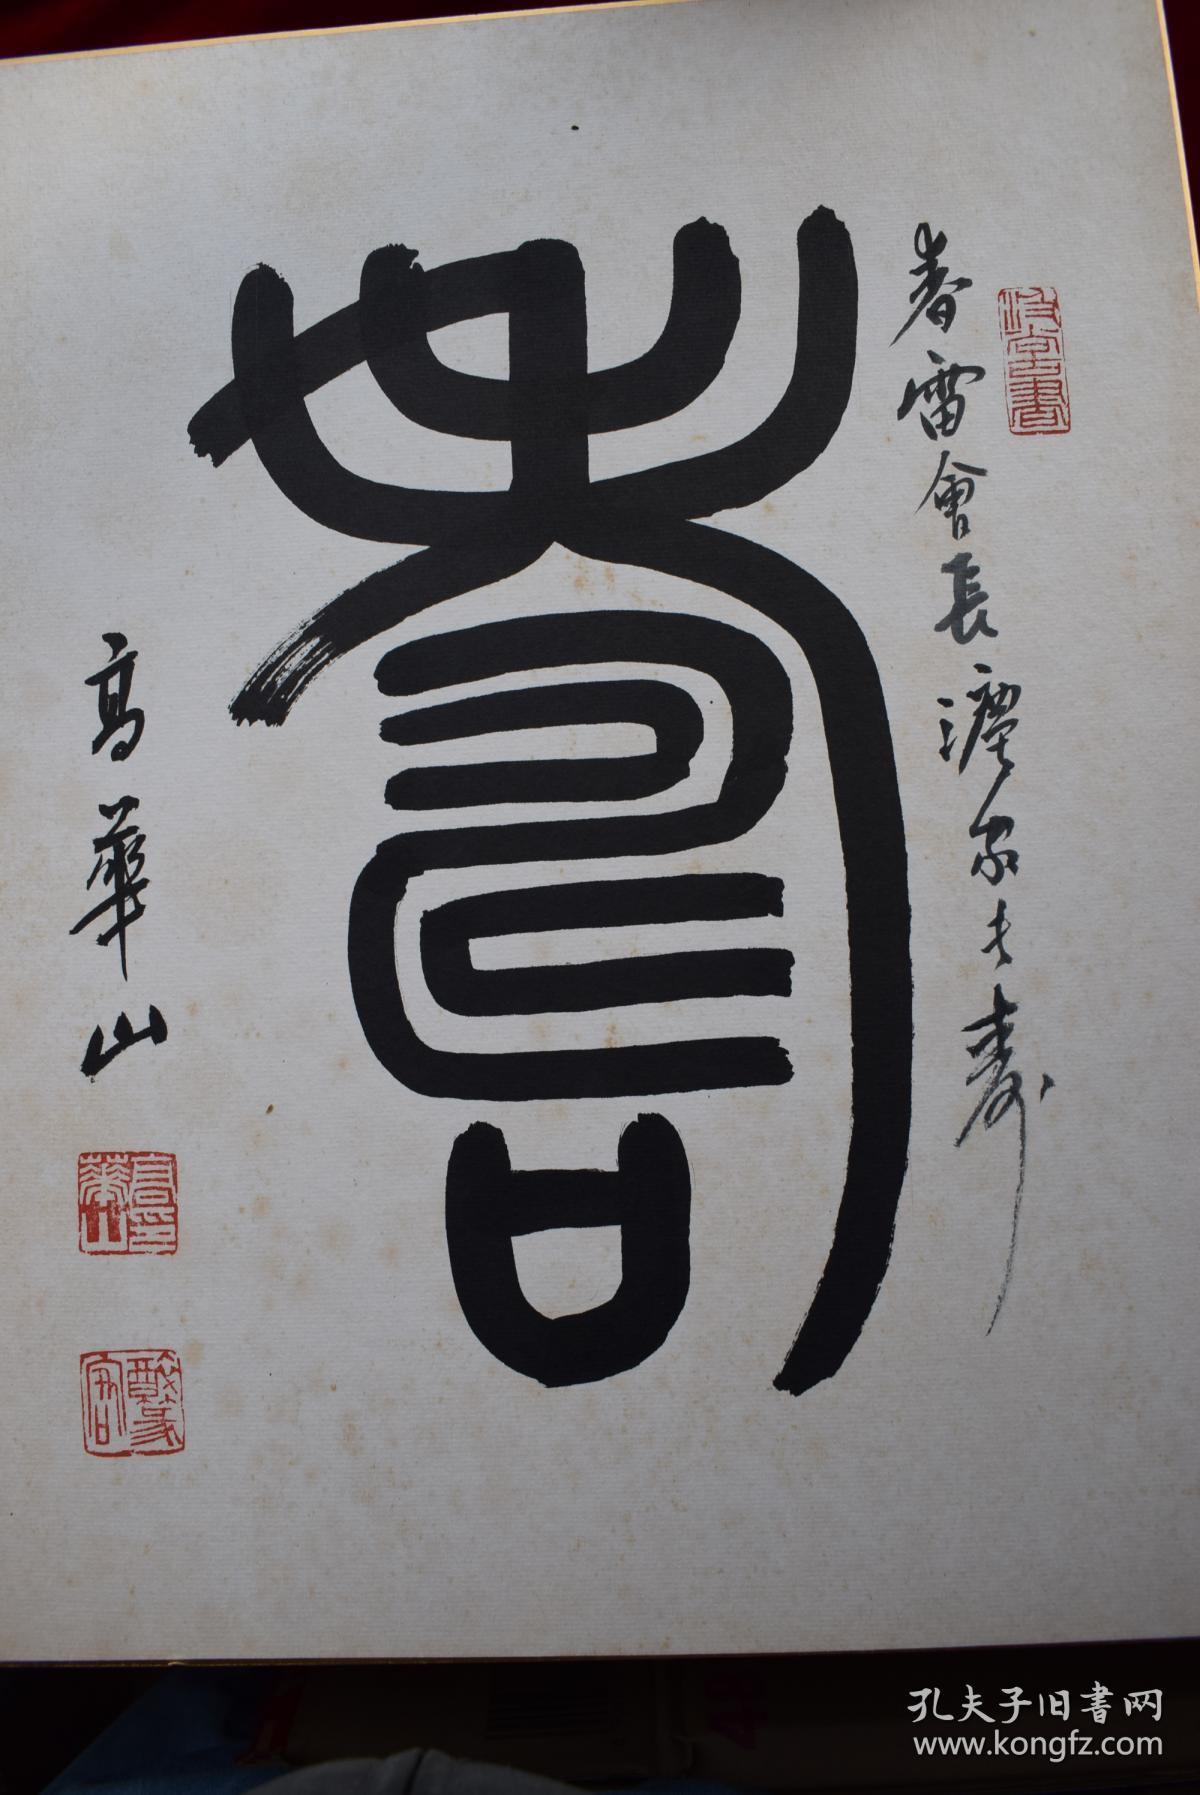 壽
春雷會長瀍家大壽
高華山
孔夫子旧書网
www.kongfz.com